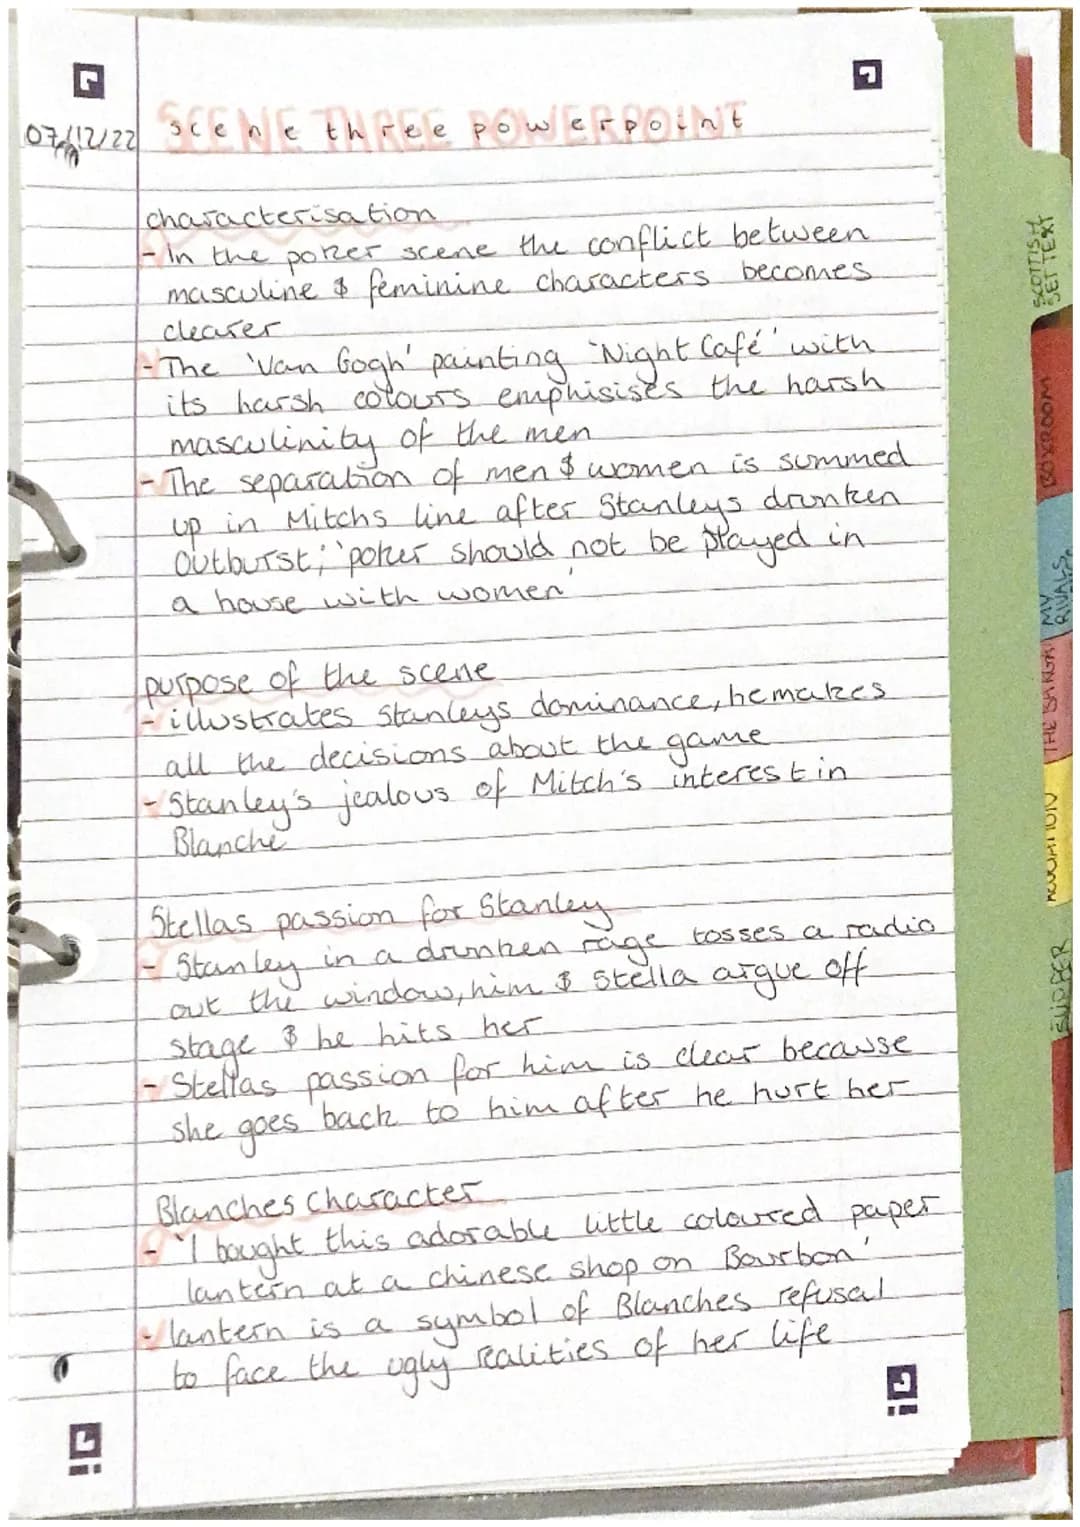 07/12/22
SCENE THREE POWERPOINT
scene three powerpoint
characterisation
- In the poker scene the conflict between
masculine & feminine characters becomes
clearer
- The 'Van Gogh' painting 'Night Café' with
its harsh colours emphisises the harsh
masculinity of the men
- The separation of men & women is summed
up in Mitchs line after Stanleys drunken
outburst; 'poker should not be played in
a house with women'
purpose of the scene
- illustrates Stanleys dominance, he makes
all the decisions about the game
- Stanley's jealous of Mitch's interest in
Blanche
Stellas passion for Stanley
- Stanley in a drunken rage tosses a radio
out the window, him & Stella argue off
stage & he hits her
- Stellas passion for him is clear because
she goes back to him after he hurt her
Blanches Character
- 'I bought this adorable little coloured paper
lantern at a chinese shop on Bourbon'
- lantern is a symbol of Blanches refusal
to face the ugly realities of her life
SCOTTISH
SET TEXT
BOXROOM
MY
RIVALS
THE BARGAI
SUPPER